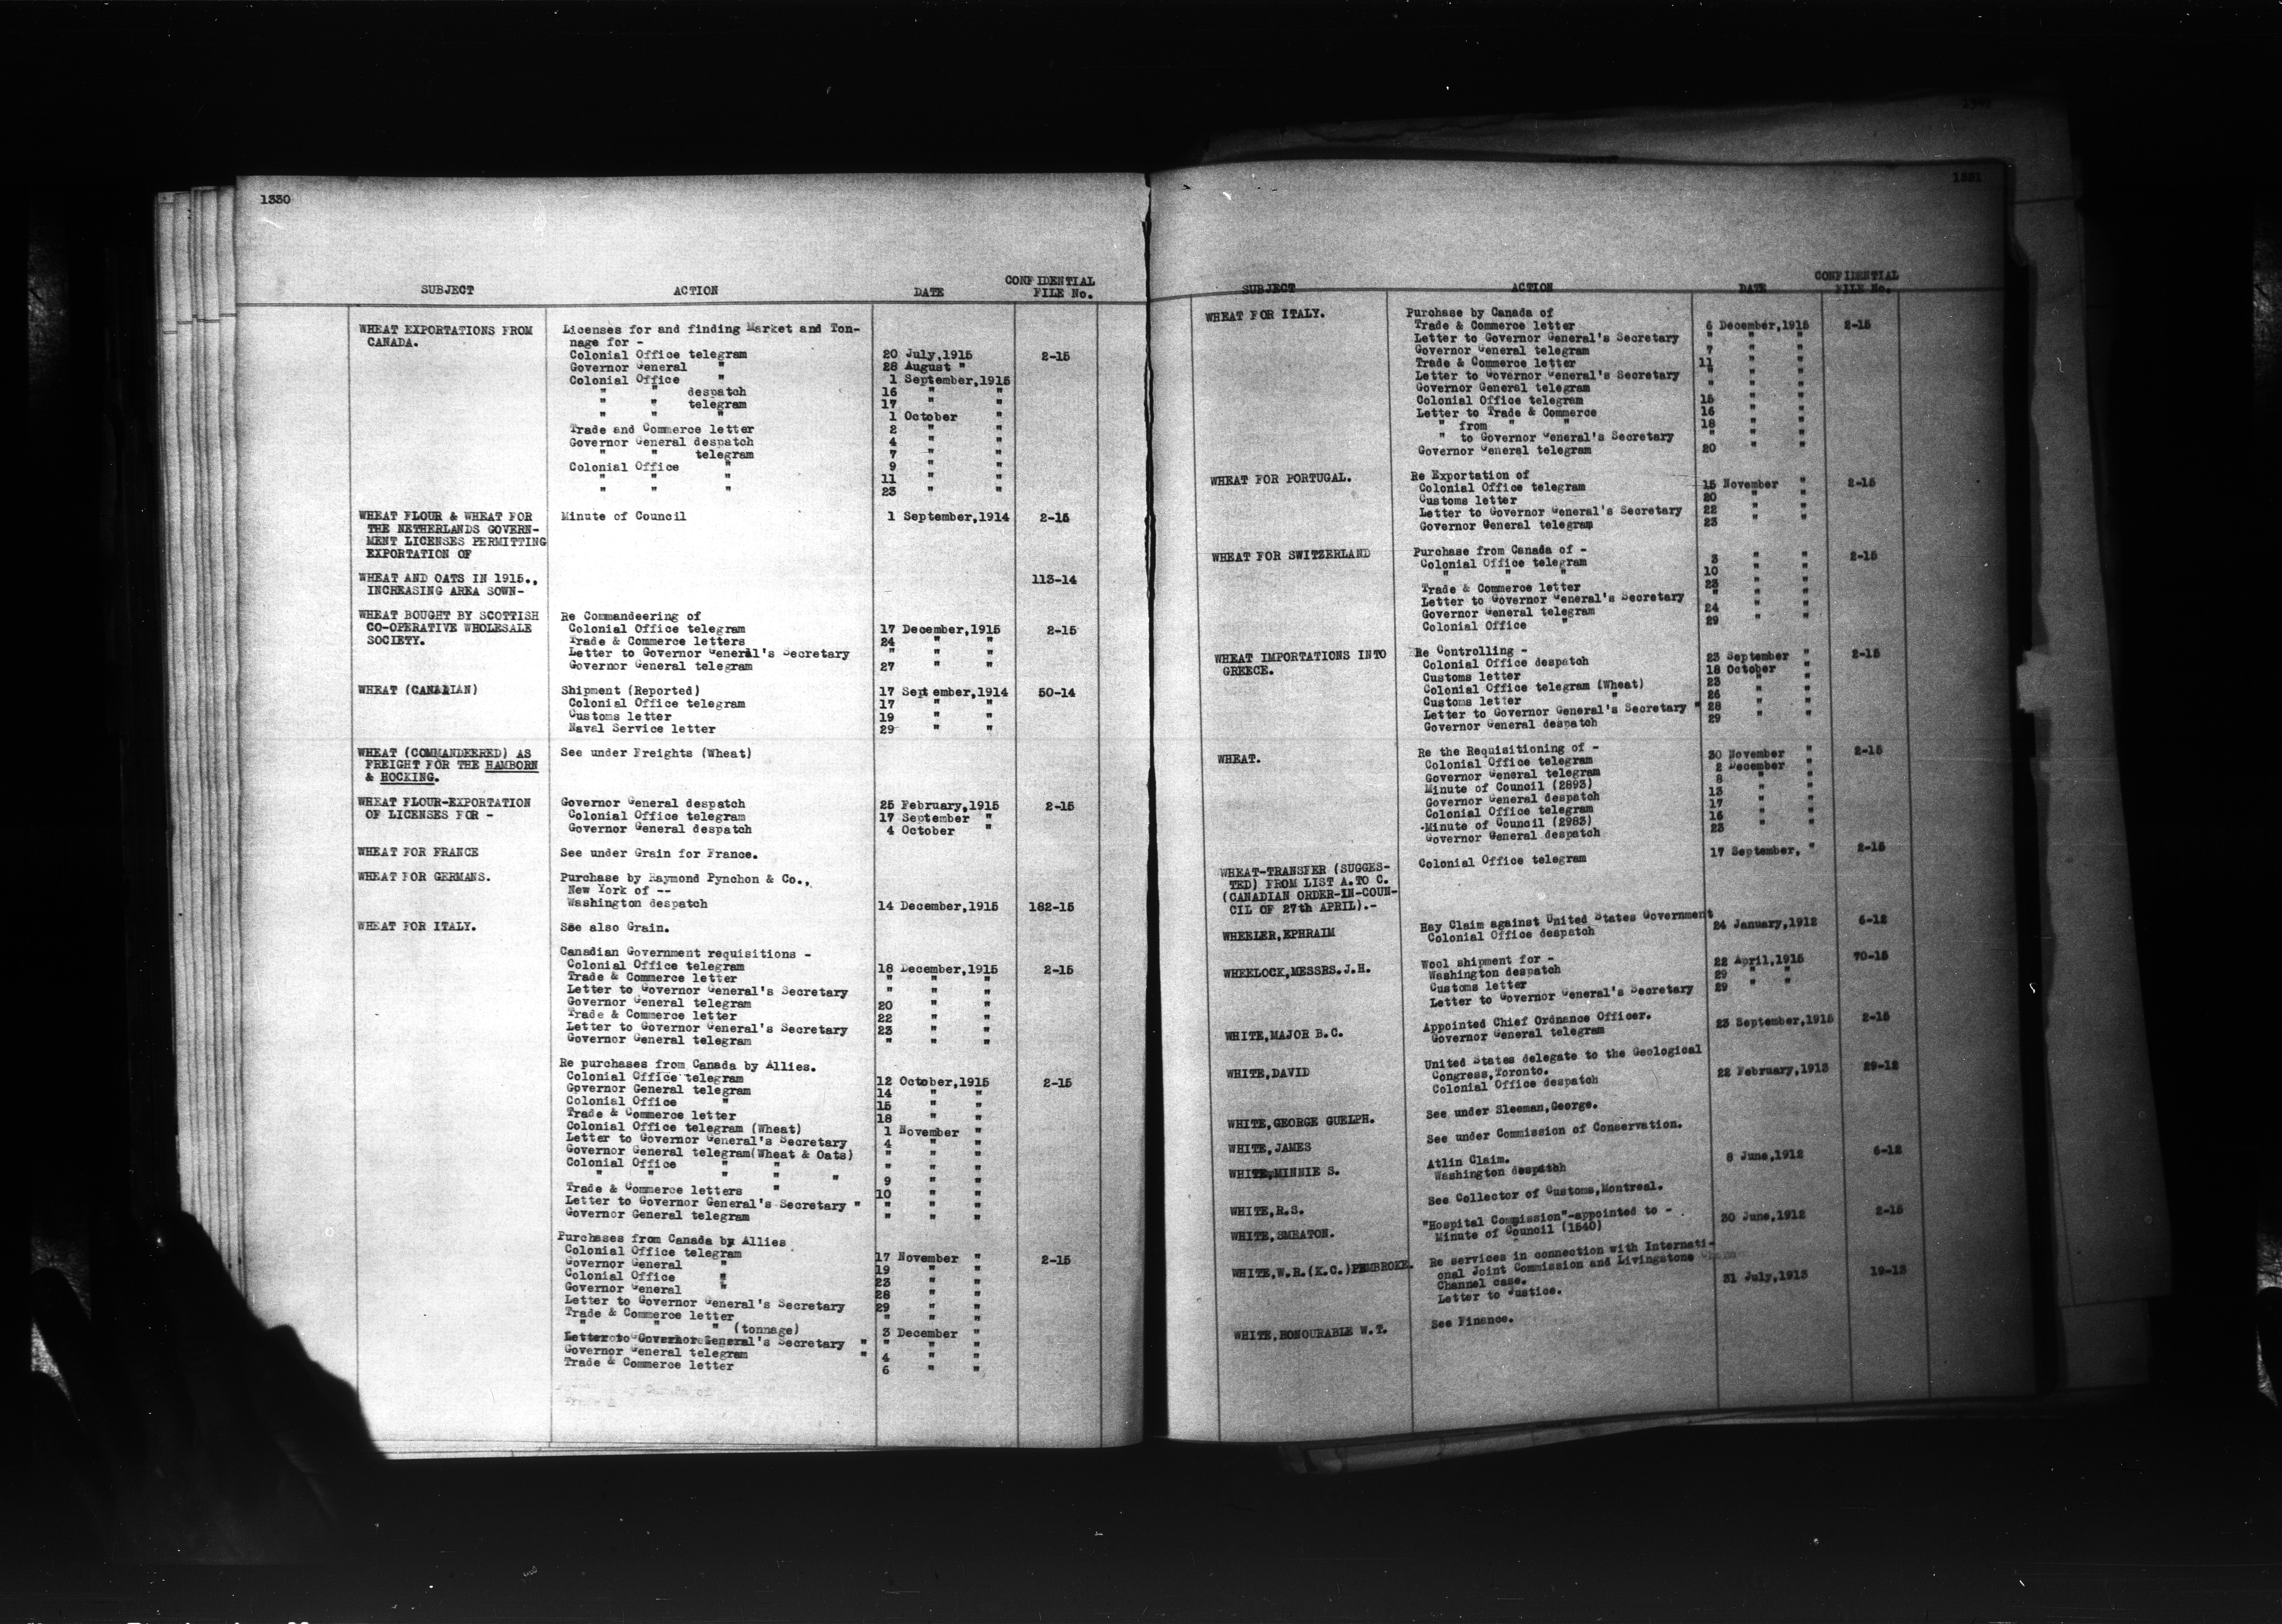 1330
SUBJECT ACTION DATE CONFIDENTIAL FILE No.
WHEAT EXPORTATIONS FROM Licenses for and finding Market and Ton-
CANADA. nage for -
Colonial Office telegram 20 July,1915 2-15
Governor General " 28 August "
Colonial Office " 1 September,1915
" " despatch 16 " "
" " telegram 17 " "
" " " 1 October "
Trade and Commerce letter 2 " "
Governor General despatch 4 " "
" " telegram 7 " "
Colonial Office " 9 " "
" " " 11 " "
" " " 23 " "
WHEAT FLOUR & WHEAT FOR Minute of Council 1 September,1914 2-15
THE NETHERLANDS GOVERN-
MENT LICENSES PERMITTING
EXPORTATION OF
WHEAT AND OATS IN 1915., 113-14
INCREASING AREA SOWN-
WHEAT BOUGHT BY SCOTTISH Re Commandeering of
CO-OPERATIVE WHOLESALE Colonial Office telegram 17 December,1915 2-15
SOCIETY. Trade & Commerce letters 24 " "
Letter to Governor General's Secretary " " "
Governor General telegram 27 " "
WHEAT (CANADIAN) Shipment (Reported) 17 September,1914 50-14
Colonial Office telegram 17 " "
Customs letter 19 " "
Naval Service letter 29 " "
WHEAT (COMMANDEERED) AS See under Freights (Wheat)
FREIGHT FOR THE HAMBORN
& HOCKING.
WHEAT FLOUR-EXPORTATION Governor General despatch 25 February,1915 2-15
OF LICENSES FOR - Colonial Office telegram 17 September "
Governor General despatch 4 October "
WHEAT FOR FRANCE See under Grain for France.
WHEAT FOR GERMANS. Purchase by Raymond Pynchon & Co.,
New York of --
Washington despatch 14 December,1915 182-15
WHEAT FOR ITALY. See also Grain.
Canadian Government requisitions -
Colonial Office telegram 18 December,1915 2-15
Trade & Commerce letter " " "
Letter to Governor General's Secretary " " "
Governor General telegram 20 " "
Trade & Commerce letter 22 " "
Letter to Governor General's Secretary 23 " "
Governor General telegram " " "
Re purchases from Canada by Allies.
Colonial Office telegram 12 October,1915 2-15
Governor General telegram 14 " "
Colonial Office " 15 " "
Trade & Commerce letter 18 " "
Colonial Office telegram (Wheat) 1 November "
Letter to Governor General's Secretary 4 " "
Governor General telegram(Wheat & Oats) " " "
Colonial Office " " " " "
" " " " " 9 " "
Trade & Commerce letters " 10 " "
Letter to Governor General's Secretary " " " "
Governor General telegram " " "
Purchases from Canada by Allies
Colonial Office telegram 17 November " 2-15
Governor General " 19 " "
Colonial Office " 23 " "
Governor General " 28 " "
Letter to Governor General's Secretary 29 " "
Trade & Commerce letter " " "
" " " (tonnage) 3 December "
Letter to Governor General's Secretary " " " "
Governor General telegram " 4 " "
Trade & Commerce letter 6 " "
1331
SUBJECT ACTION DATE CONFIDENTIAL FILE No.
WHEAT FOR ITALY. Purchase by Canada of
Trade & Commerce letter 6 December,1915 2-15
Letter to Governor General's Secretary " " "
Governor General telegram 7 " "
Trade & Commerce letter 11 " "
Letter to Governor General's Secretary " " "
Governor General telegram " " "
Colonial Office telegram 15 " "
Letter to Trade & Commerce 16 " "
" from " " 18 " "
" to Governor General's Secretary " " "
Governor General telegram 20 " "
WHEAT FOR PORTUGAL. Re Exportation of
Colonial Office telegram 15 November " 2-15
Customs letter 20 " "
Letter to Governor General's Secretary 22 " "
Governor General telegram 23 " "
WHEAT FOR SWITZERLAND Purchase from Canada of -
Colonial Office telegram 3 " " 2-15
" " " 10 " "
Trade & Commerce letter 23 " "
Letter to Governor General's Secretary " " "
Governor General telegram 24 " "
Colonial Office " 29 " "
WHEAT IMPORTATIONS INTO Re Controlling -
GREECE. Colonial Office despatch 23 September " 2-15
Customs letter 18 October "
Colonial Office telegram (Wheat) 23 " "
Customs letter " 26 " "
Letter to Governor General's Secretary " 28 " "
Governor General despatch 29 " "
WHEAT. Re the Requisitioning of -
Colonial Office telegram 30 November " 2-15
Governor General telegram 2 December "
Minute of Council (2893) 8 " "
Governor General despatch 13 " "
Colonial Office telegram 17 " "
Minute of Council (2983) 16 " "
Governor General despatch 23 " "
WHEAT-TRANSFER (SUGGES- Colonial Office telegram 17 September, " 2-15
TED) FROM LIST A.TO C.
(CANADIAN ORDER-IN-COUN-
CIL OF 27th APRIL).-
WHEELER,EPHRAIM Hay Claim against United States Government
Colonial Office despatch 24 January,1912 6-12
WHEELOCK,MESSRS.J.H. Wool shipment for -
Washington despatch 22 April,1915 70-15
Customs letter 29 " "
Letter to Governor General's Secretary 29 " "
WHITE,MAJOR B.C. Appointed Chief Ordnance Officer.
Governor General telegram 23 September,1915 2-15
WHITE,DAVID United States delegate to the Geological
Congress,Toronto.
Colonial Office despatch 22 February,1913 29-12
WHITE,GEORGE GUELPH. See under Sleeman,George.
WHITE,JAMES See under Commission of Conservation.
WHITE,MINNIE S. Atlin Claim.
Washington despatch 8 June,1912 6-12
WHITE,R.S. See Collector of Customs,Montreal.
WHITE,SMEATON. "Hospital Commission"-appointed to -
Minute of Council (1540) 30 June,1912 2-15
WHITE,W.R.(K.C.)PEMBROKE. Re services in connection with Internati-
onal Joint Commission and Livingstone
Channel case.
Letter to Justice. 31 July,1913 19-13
WHITE,HONOURABLE W.T. See Finance.